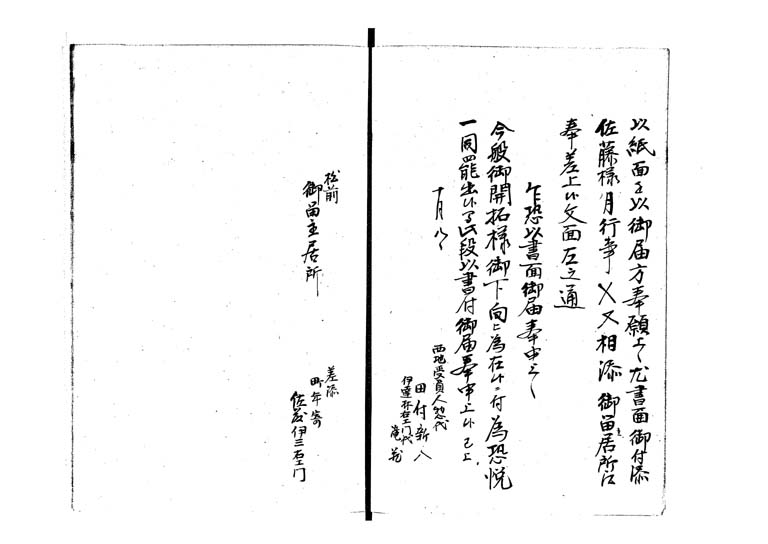 以紙面を以御届方奉願上候尤書面御付添
佐藤様月行事〆又相添御留主居所江
奉差上候文面左之通
乍恐以書面御届奉申上候
今般御開拓様御下向ニ為在候ニ付為恐悦
一同罷出候了此段以書付御届奉申上候已上
十月八日
西地受負人惣代
田付新八
伊達林右衛門代
庵蔵
松前
御留主居所
差添
町年寄
佐藤伊三右衛門